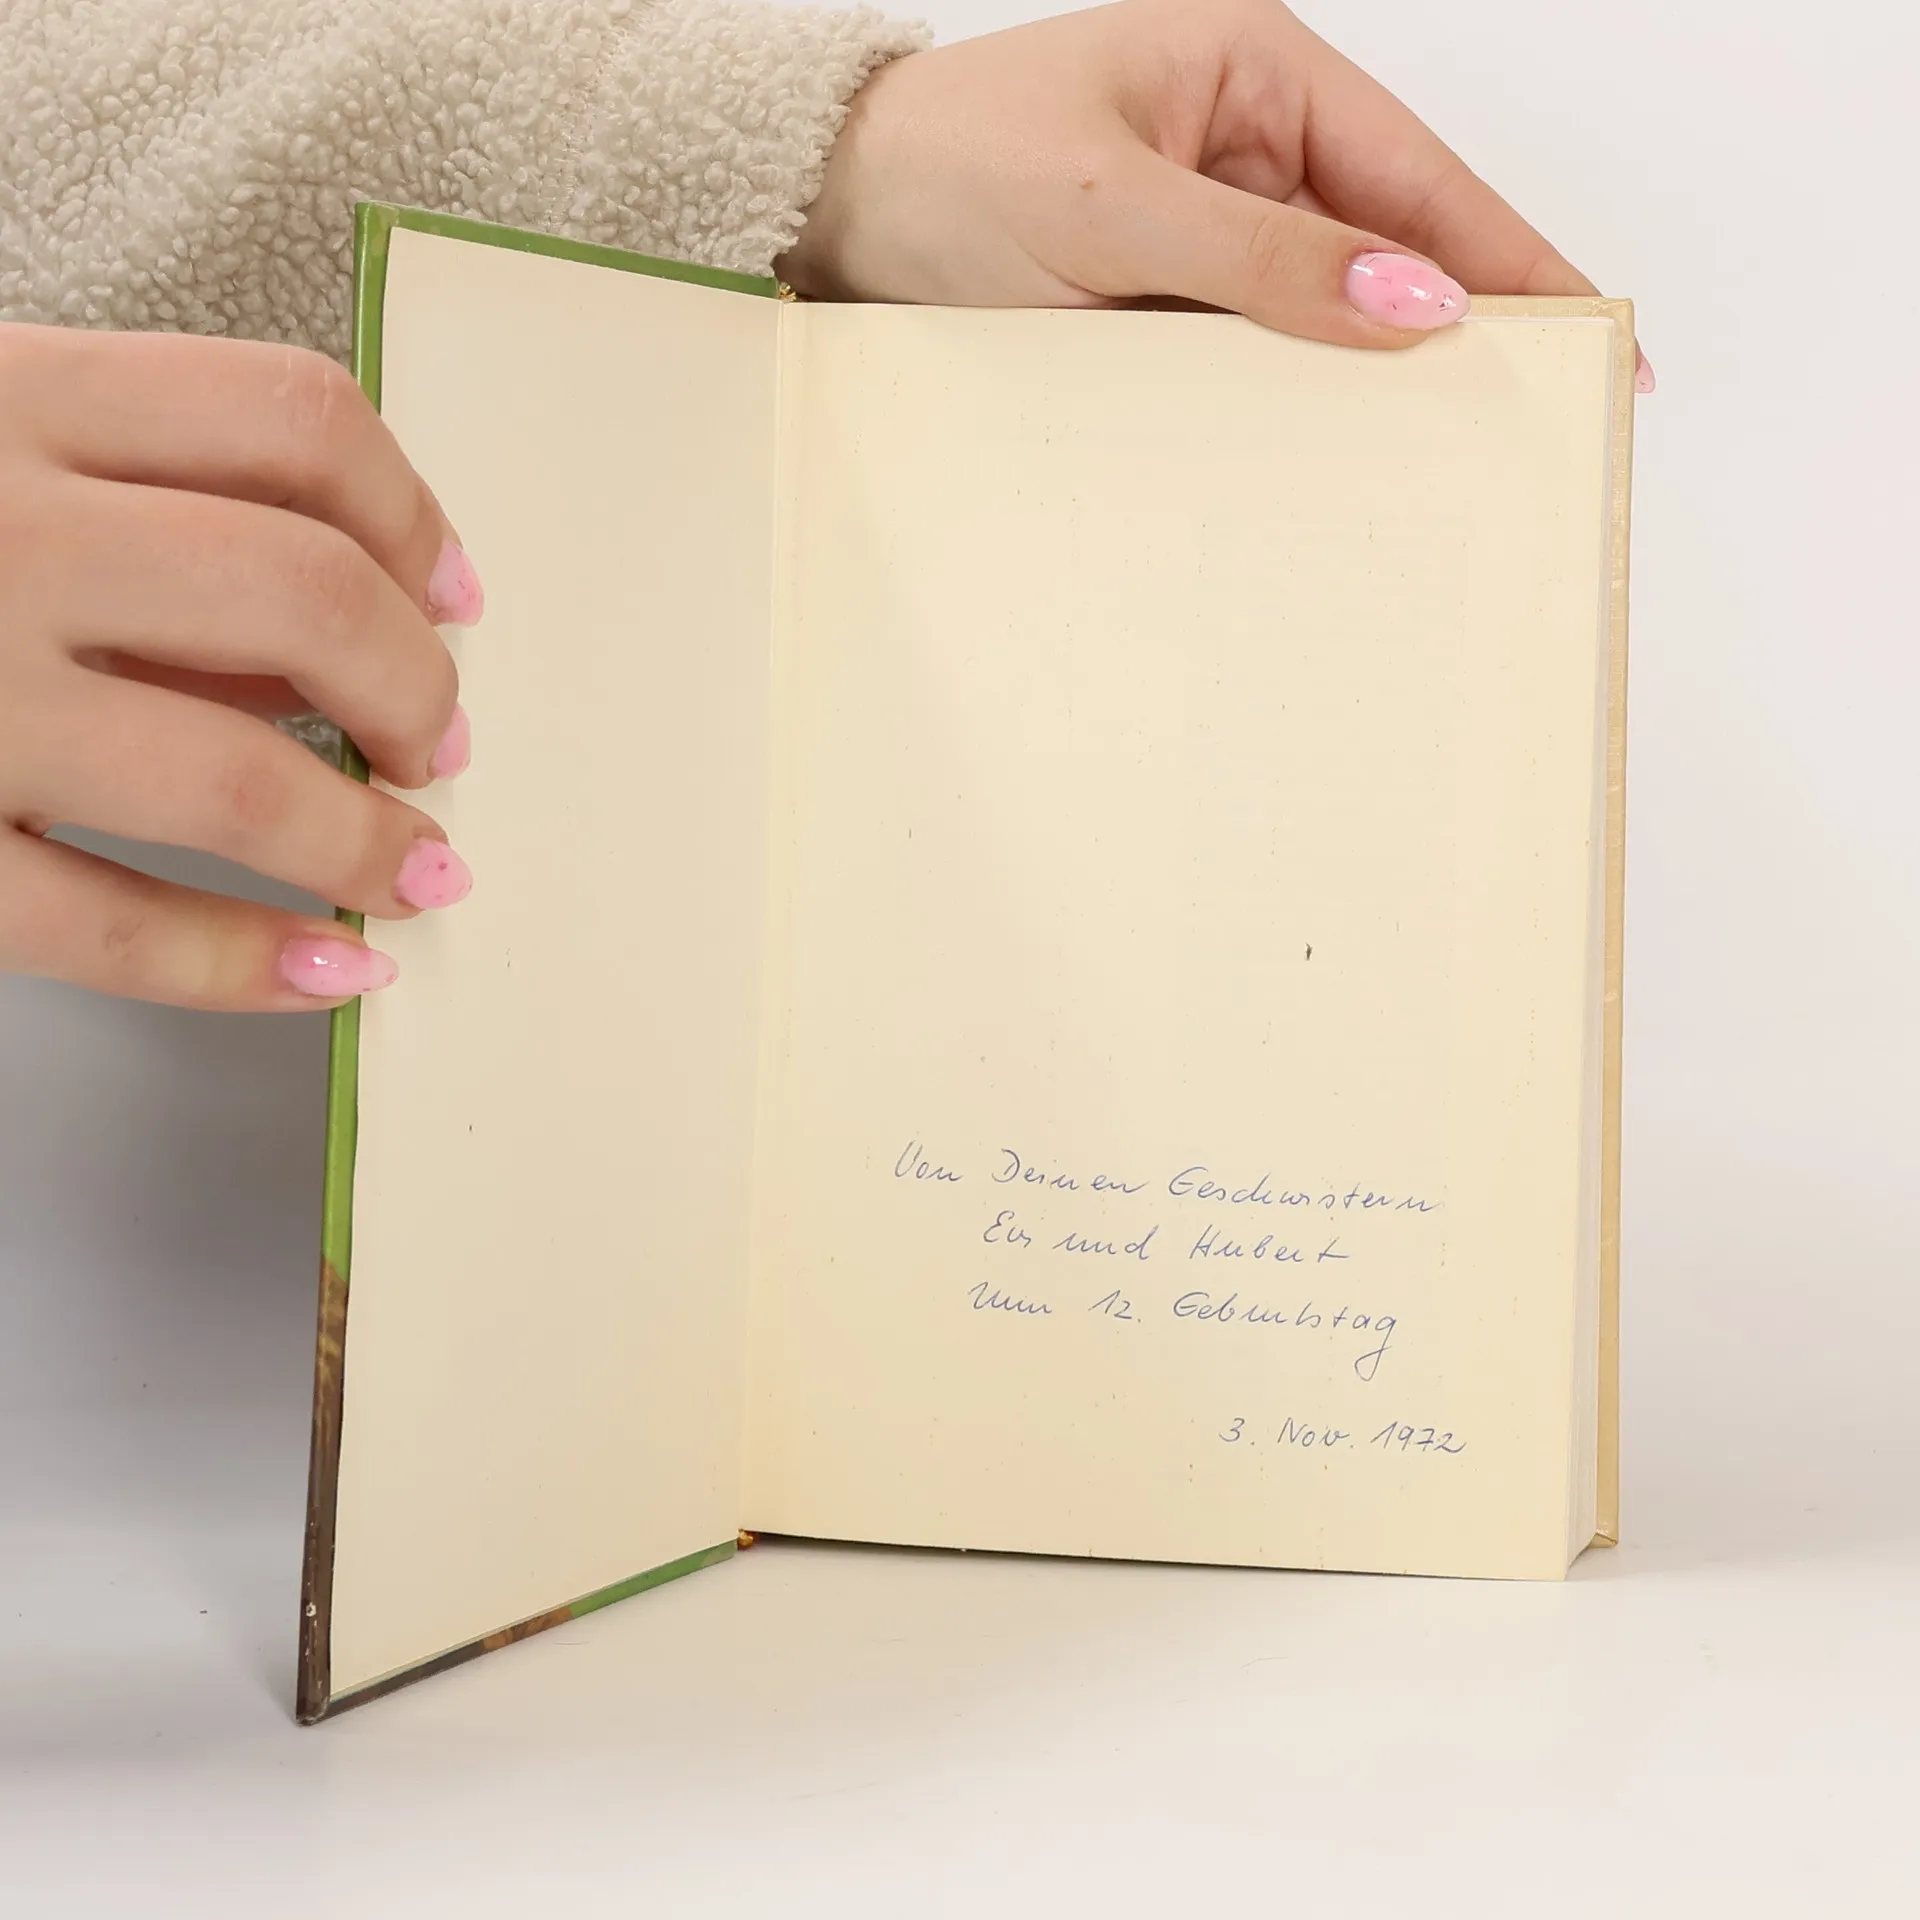 Von Deinen Geschwistern
Evi und Hubert
zum 12. Geburtstag
3. Nov. 1972